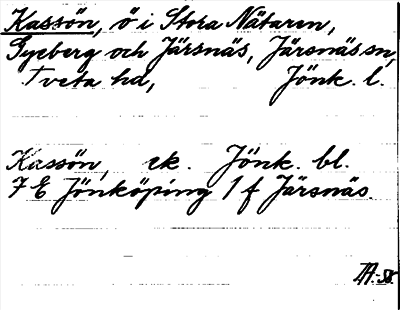 Kassön, ö i Stora Nätaren,
Gyeberg och Järsnäs, Järsnäs sn,
Tveta hd, Jönk. l.
Kassön, ek. Jönk. bl.
7 E Jönköping 1 f Järsnäs.
58